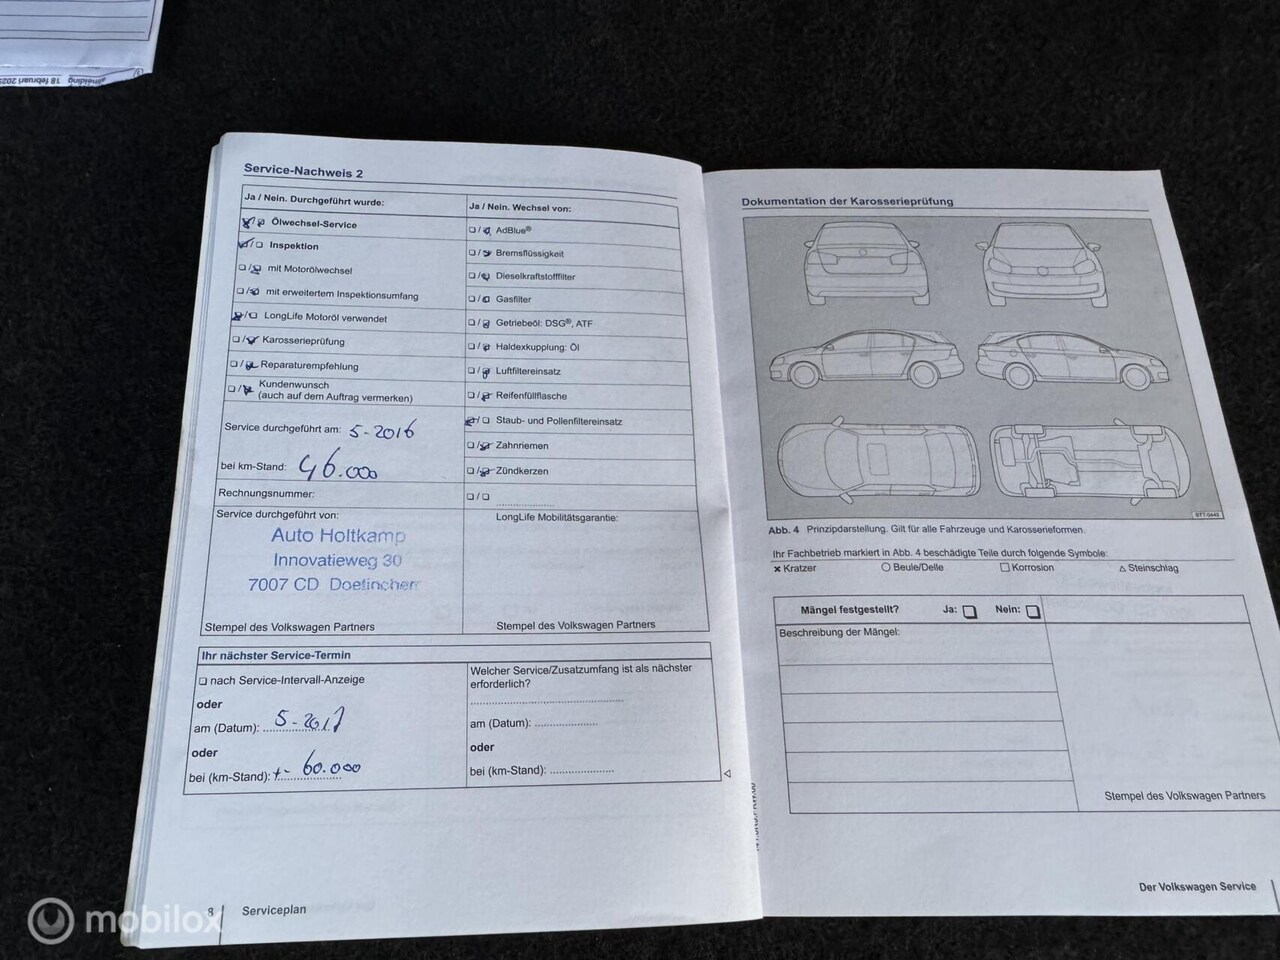 18 februari 202
Service-Nachweis 2
Ja / Nein. Durchgeführt wurde:
Ölwechsel-Service
Inspektion
mit Motorölwechsel
mit erweitertem Inspektionsumfang
LongLife Motoröl verwendet
Karosserieprüfung
Reparaturempfehlung
Kundenwunsch
(auch auf dem Auftrag vermerken)
Service durchgeführt am: 5-2016
bei km-Stand: 46.000
Rechnungsnummer:
Ja / Nein. Wechsel von:
AdBlue®
Bremsflüssigkeit
Dieselkraftstofffilter
Gasfilter
Getriebeöl: DSG®, ATF
Haldexkupplung: Öl
Luftfiltereinsatz
Reifenfüllflasche
Staub- und Pollenfiltereinsatz
Zahnriemen
Zündkerzen
Service durchgeführt von:
Auto Holtkamp
Innovatieweg 30
7007 CD Doetinchem
Stempel des Volkswagen Partners
LongLife Mobilitätsgarantie:
Stempel des Volkswagen Partners
Ihr nächster Service-Termin
nach Service-Intervall-Anzeige
oder
am (Datum): 5-2017
oder
bei (km-Stand): +- 60.000
Welcher Service/Zusatzumfang ist als nächster
erforderlich?
am (Datum):
oder
bei (km-Stand):
8 Serviceplan
Dokumentation der Karosserieprüfung
Abb. 4 Prinzipdarstellung. Gilt für alle Fahrzeuge und Karosserieformen.
Ihr Fachbetrieb markiert in Abb. 4 beschädigte Teile durch folgende Symbole:
× Kratzer ○ Beule/Delle □ Korrosion △ Steinschlag
Mängel festgestellt? Ja: Nein:
Beschreibung der Mängel:
Stempel des Volkswagen Partners
Der Volkswagen Service
mobilox